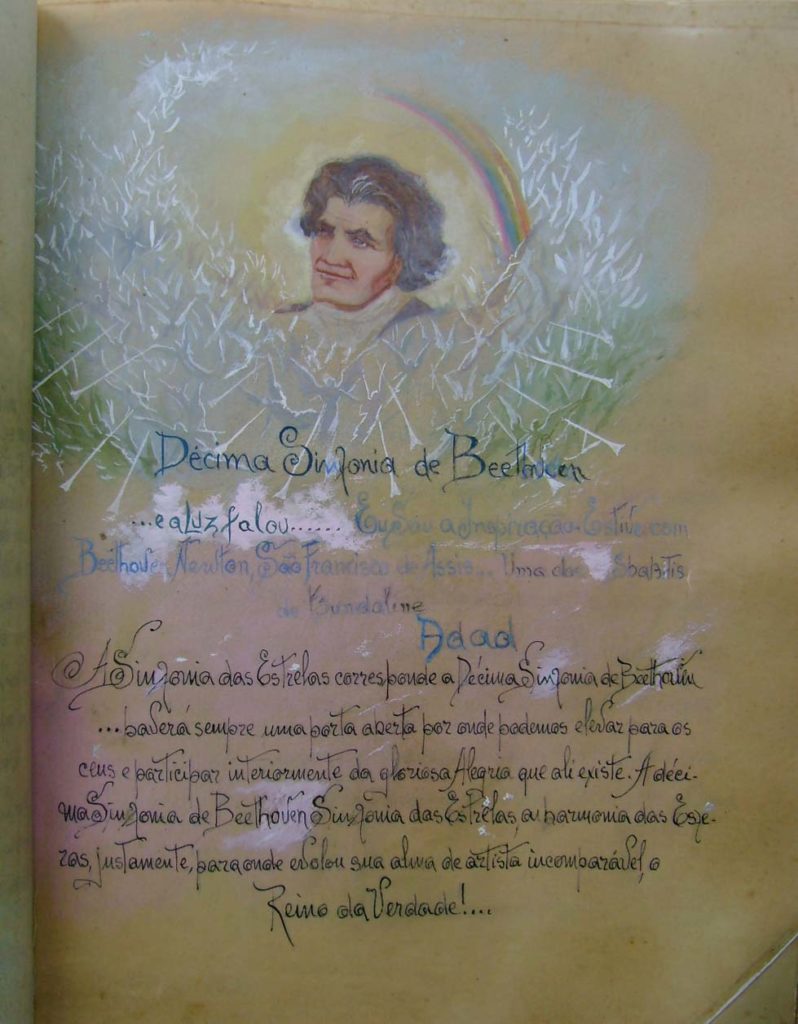 Décima Sinfonia de Beethoven
...e a Luz falou...... Eu Sou a Inspiração. Estive com
Beethoven, Newtton, São Francisco de Assis... Uma das
de Kundaline
Adad
A Sinfonia das Estrelas corresponde a Décima Sinfonia de Beethoven
...haverá sempre uma porta aberta por onde podemos elevar para os
céus e participar interiormente da gloriosa Alegria que ali existe. A déci-
ma Sinfonia de Beethoven Sinfonia das Estrelas, a harmonia das Esfe-
ras, justamente, para onde evolou sua alma de artista incomparável, o
Reino da Verdade!....